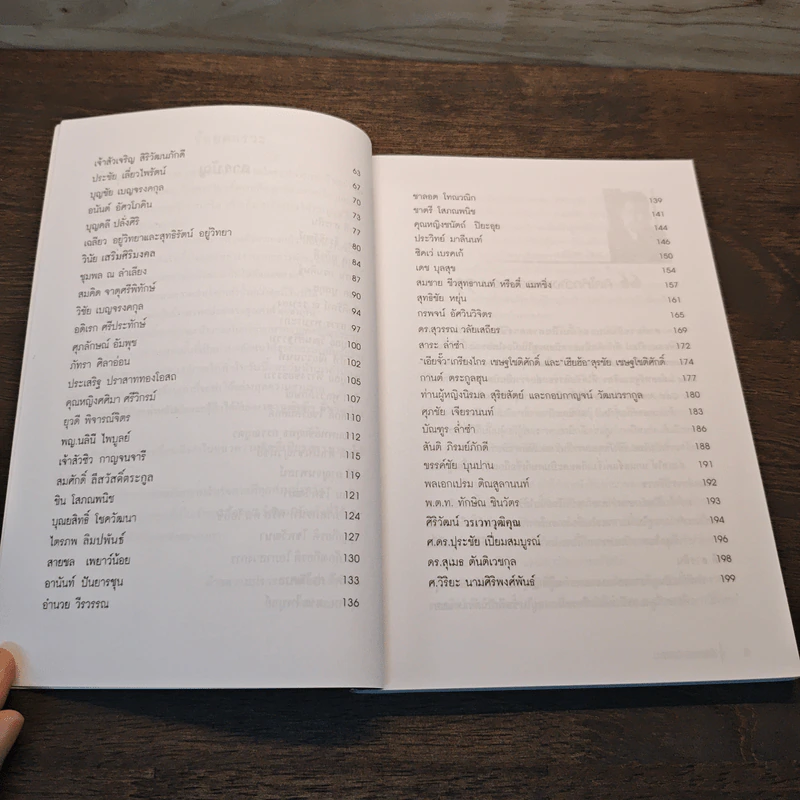 เจ้าสัวเจริญ สิริวัฒนภักดี 63
ประชัย เลี่ยวไพรัตน์ 67
บุญชัย เบญจรงคกุล 70
อนันต์ อัศวโภคิน 73
บุญคลี ปลั่งศิริ 77
เฉลียว อยู่วิทยาและสุทธิรัตน์ อยู่วิทยา 80
วินัย เสริมศิริมงคล 84
ชุมพล ณ ลำเลียง 87
สมคิด จาตุศรีพิทักษ์ 90
วิชัย เบญจรงคกุล 94
อดิเรก ศรีประทักษ์ 97
ศุภลักษณ์ อัมพุช 100
ภัทรา ศิลาอ่อน 102
ประเสริฐ ปราสาททองโอสถ 105
คุณหญิงศศิมา ศรีวิกรม์ 107
ยุวดี พิจารณ์จิตร 110
พญ.นลินี ไพบูลย์ 112
เจ้าสัวชิว กาญจนจารี 115
สมศักดิ์ ลีสวัสดิ์ตระกูล 119
ชิน โสภณพนิช 121
บุณยสิทธิ์ โชควัฒนา 124
ไตรภพ ลิมปพันธ์ 127
สายชล เพยาว์น้อย 130
อานันท์ ปันยารชุน 133
อำนวย วีรวรรณ 136
ชาลอต โทณวณิก 139
ชาตรี โสภณพนิช 141
คุณหญิงชนัตถ์ ปิยะอุย 144
ประวิทย์ มาลีนนท์ 146
ชิคเว่ เบรคเก้ 150
เดช บุลสุข 154
สมชาย ชีวสุทธานนท์ หรือตี๋ แมทชิ่ง 157
สุทธิชัย หยุ่น 161
กรพจน์ อัศวินวิจิตร 165
ดร.สุวรรณ วลัยเสถียร 169
สาระ ล่ำซำ 172
"เฮียจั๊ว"เกรียงไกร เชษฐโชติศักดิ์ และ"เฮียฮ้อ"สุรชัย เชษฐโชติศักดิ์ 174
กานต์ ตระกูลฮุน 177
ท่านผู้หญิงนิรมล สุริยสัตย์ และกอบกาญจน์ วัฒนวรางกูล 180
ศุภชัย เจียรวนนท์ 183
บัณฑูร ล่ำซำ 186
สันติ ภิรมย์ภักดี 188
ขรรค์ชัย บุนปาน 191
พลเอกเปรม ติณสูลานนท์ 192
พ.ต.ท. ทักษิณ ชินวัตร 193
ศิริวัฒน์ วรเวทวุฒิคุณ 194
ศ.ดร.ปุระชัย เปี่ยมสมบูรณ์ 196
ดร.สุเมธ ตันติเวชกุล 198
ศ.วิริยะ นามศิริพงศ์พันธ์ 199